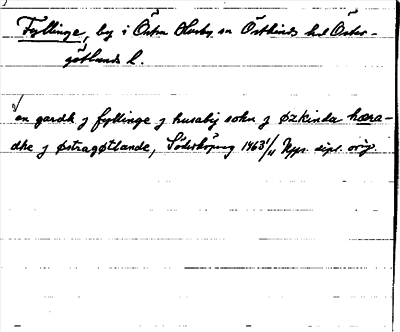 Fyllinge, by i Östra Husby sn Östkinds hd Öster-
götlands l.
en gardh j fyllinge j husaby sokn j øzkinda hæra-
dhe j østragøtlande, Söderköping 1463 1/11 Upps. dipl. orig.